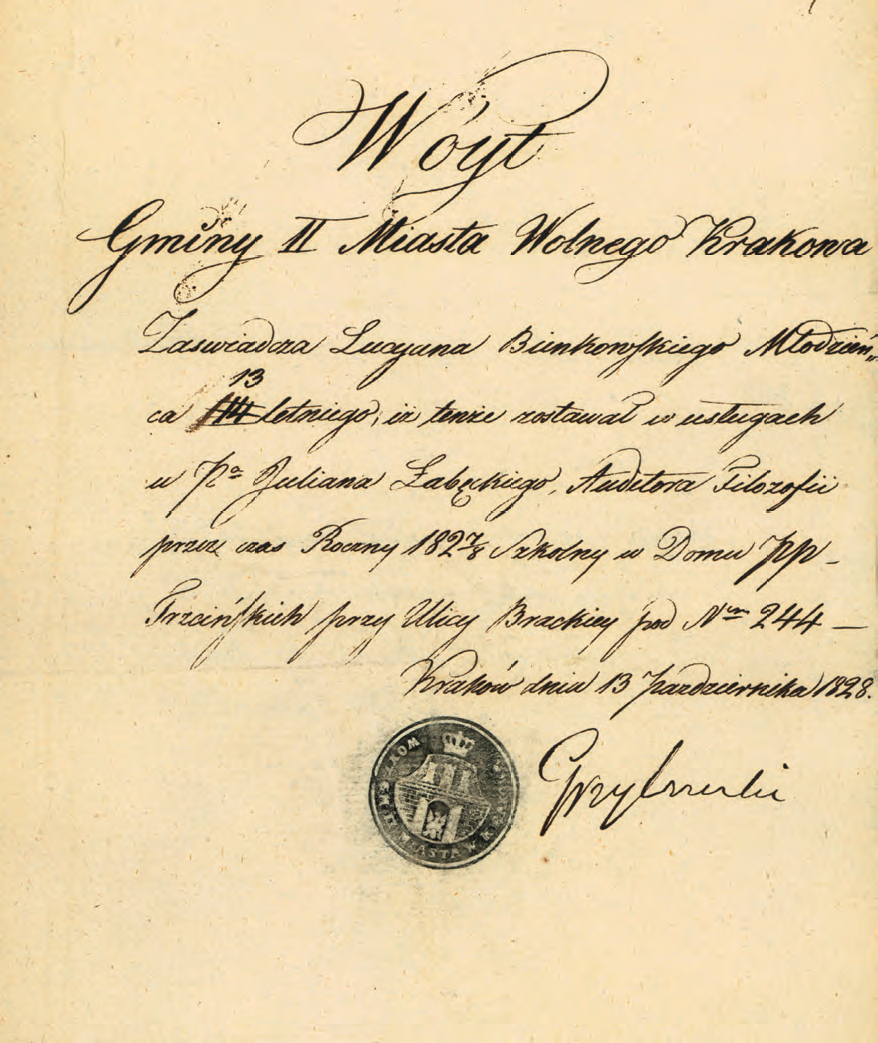 Wóyt
Gminy II Miasta Wolnego Krakowa
Zaswiadcza Lucyana Bienkowskiego Młodzień„
13
ca letniego, iż tenże zostawał w usługach
u Pa Juliana Łabęckiego, Auditora Filozofii
przez czas Roczny 1827/8 Szkolny w Domu PP–
Trzcińskich przy Ulicy Brackiey pod Nrm 244 —
Kraków dnia 13 Października 1828.
WOYT
MIASTA